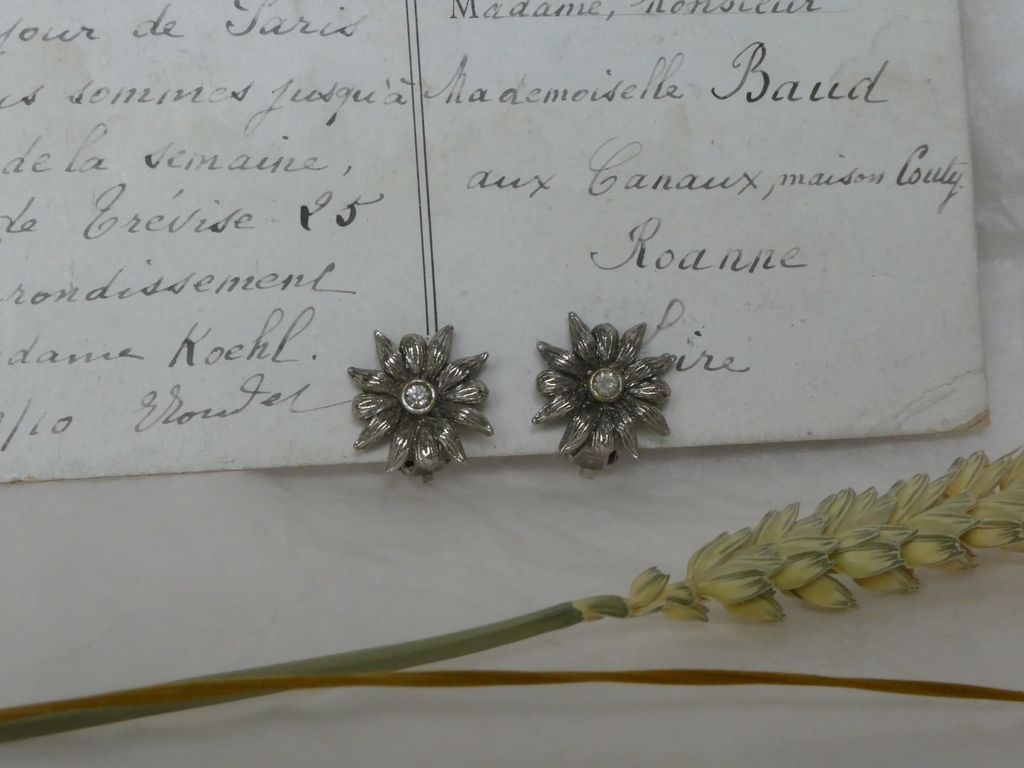 jour de Paris
is sommes jusqu'à
de la semaine,
de Trévise 25
rondissement
dame Koehl.
/10
Madame, Monsieur
Mademoiselle Baud
aux Canaux, maison Couty
Roanne
Loire